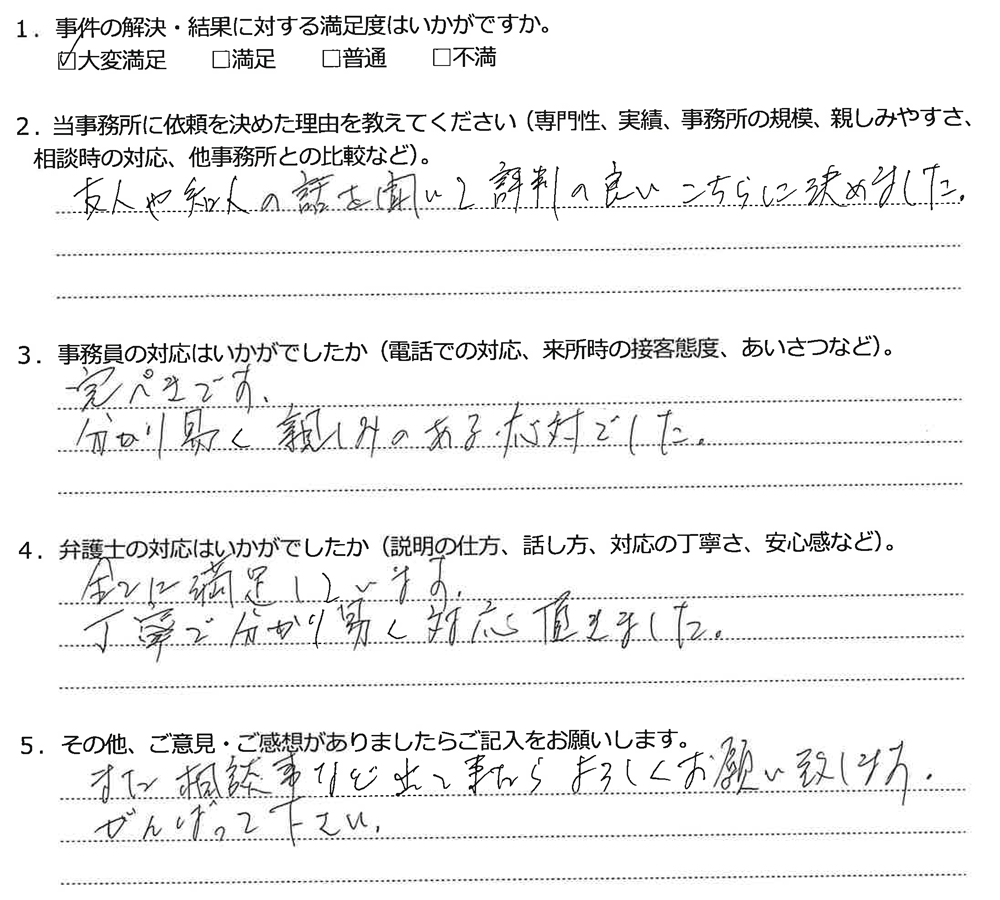 1．事件の解決・結果に対する満足度はいかがですか。
☑大変満足　□満足　□普通　□不満
2．当事務所に依頼を決めた理由を教えてください（専門性、実績、事務所の規模、親しみやすさ、
相談時の対応、他事務所との比較など）。
友人や知人の話を聞いて評判の良いこちらに決めました。
3．事務員の対応はいかがでしたか（電話での対応、来所時の接客態度、あいさつなど）。
完ぺきです。
分かり易く親しみのある応対でした。
4．弁護士の対応はいかがでしたか（説明の仕方、話し方、対応の丁寧さ、安心感など）。
全てに満足しています。
丁寧で分かり易く対応頂きました。
5．その他、ご意見・ご感想がありましたらご記入をお願いします。
また相談事など出て来たらよろしくお願い致します。
がんばって下さい。